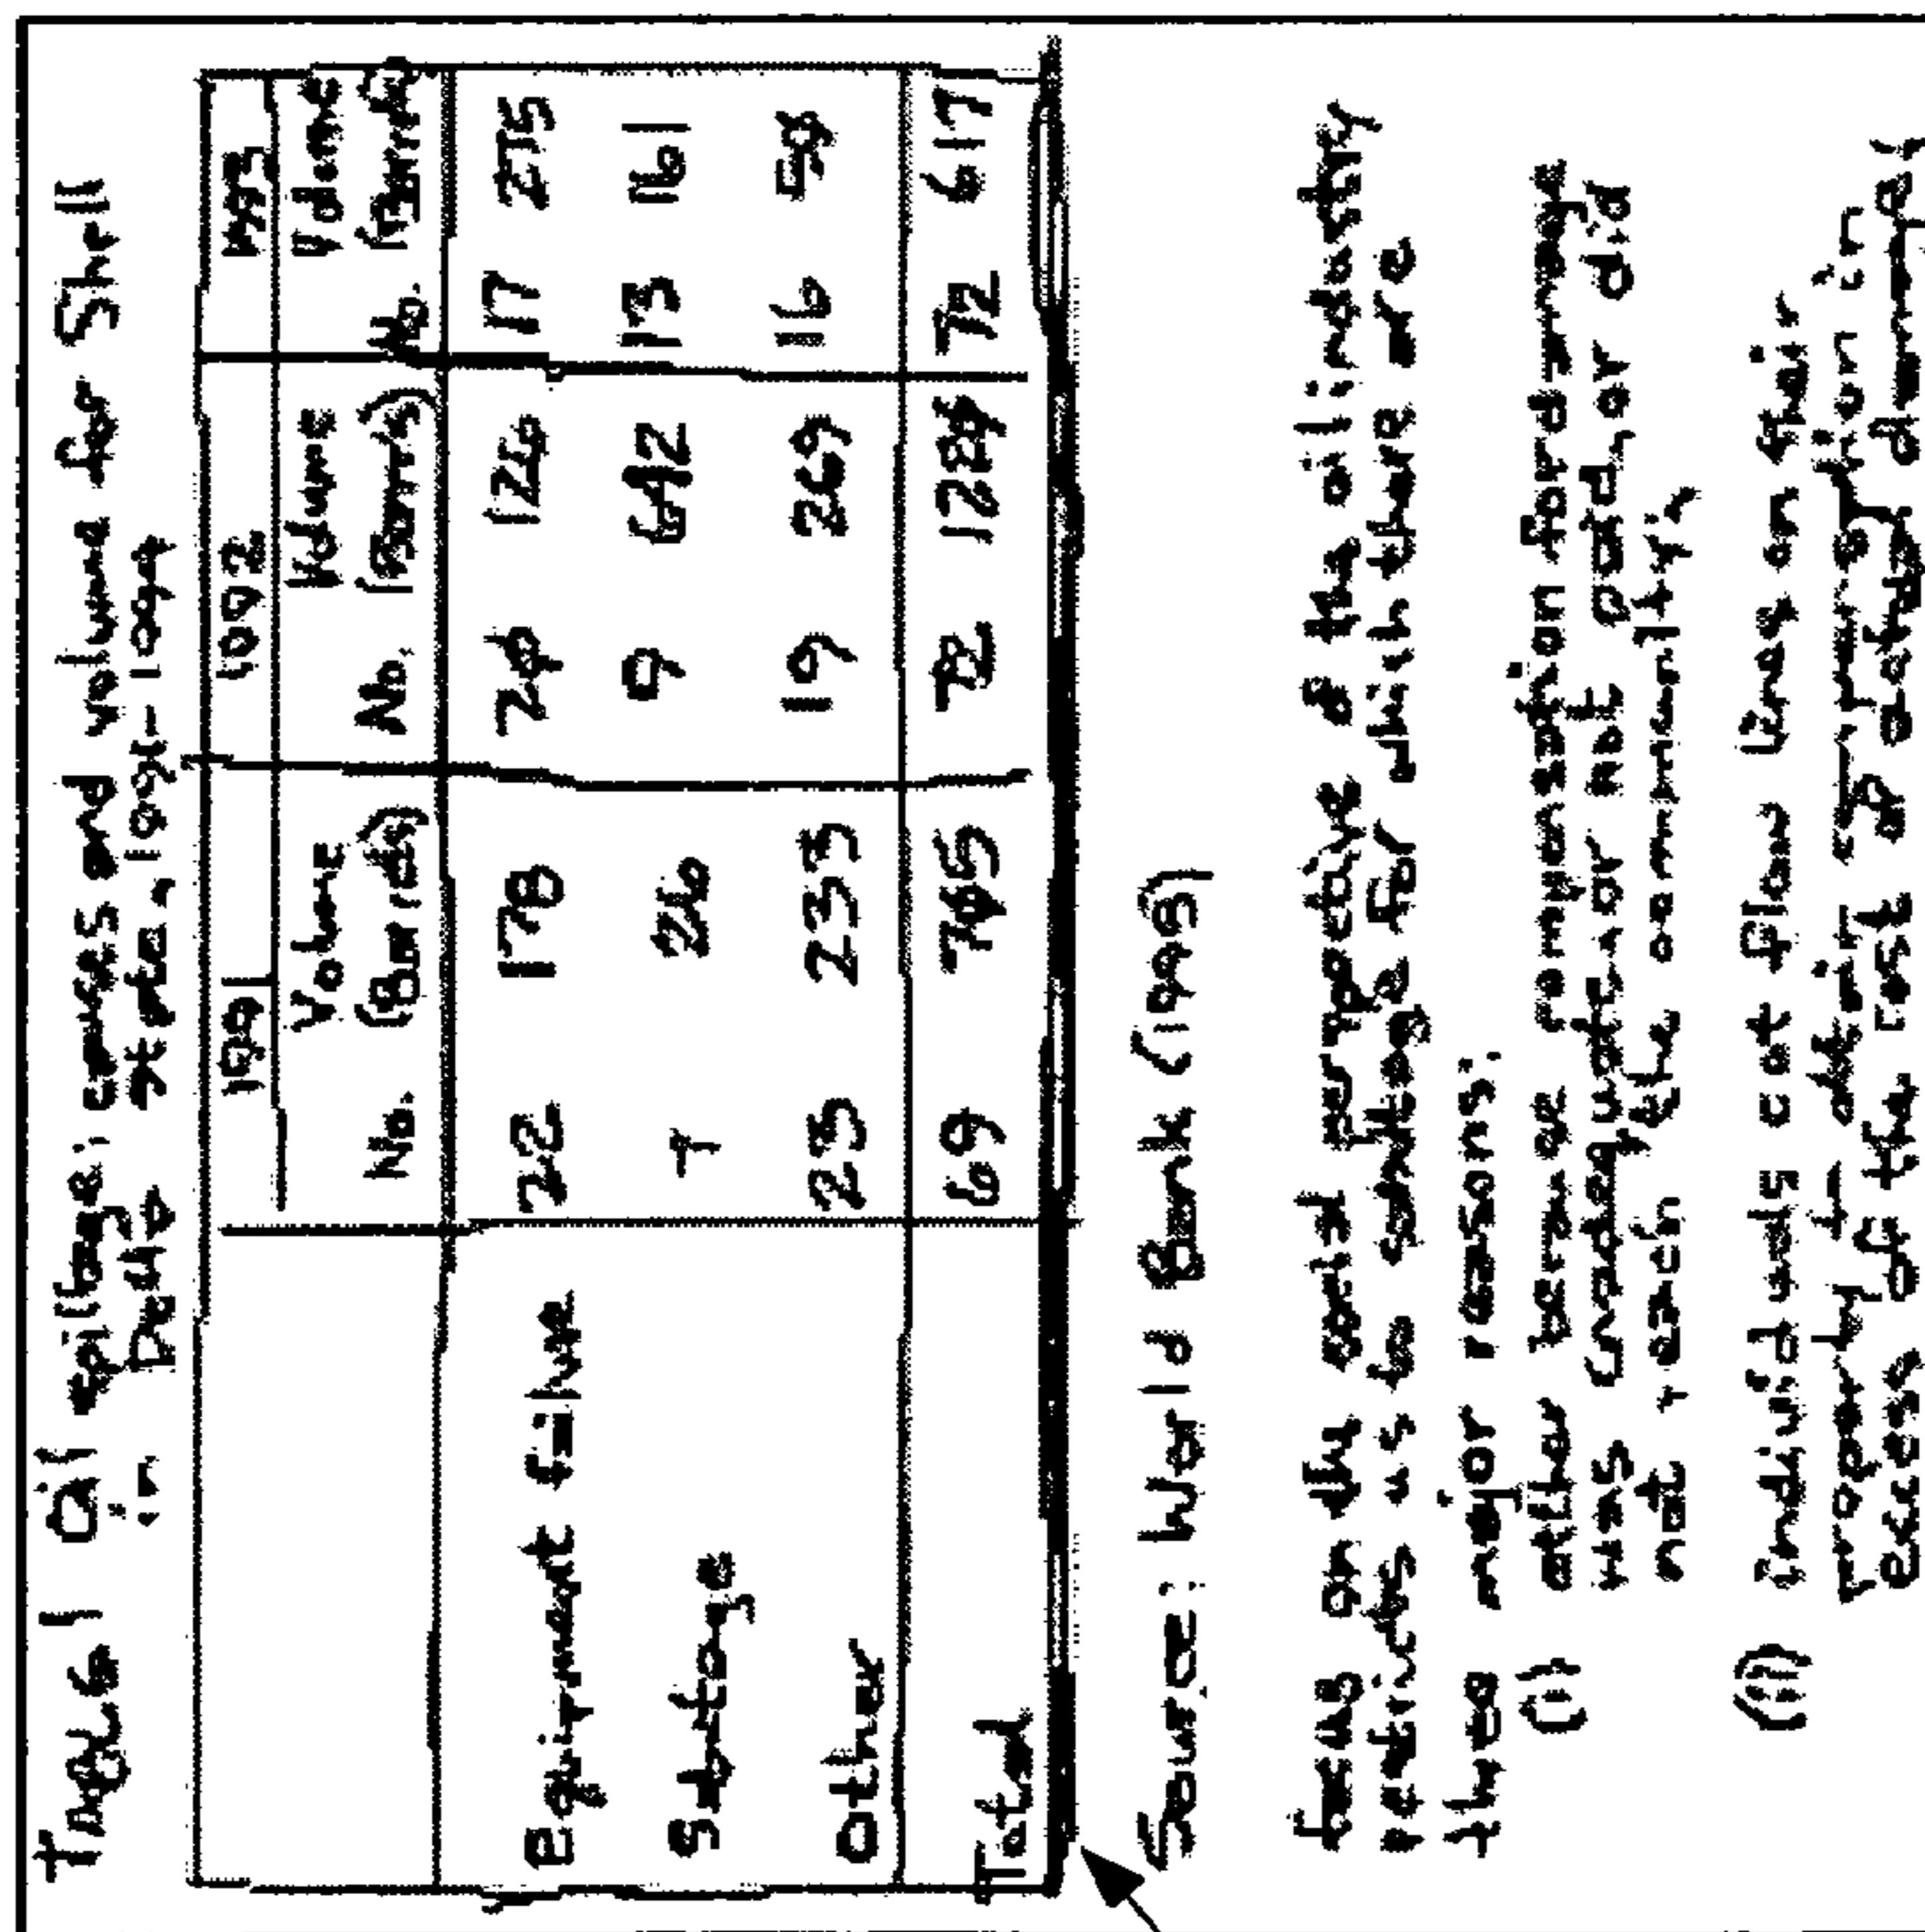 Table 1 Oil spillage: causes and volume for Shell
in Delta state, 1991-1993
1991 1992 1993
No. Volume (Barrels) No. Volume (Barrels) No. Volume (Barrels)
Equipment failure 22 178 26 126 17 275
Sabotage 7 26 9 642 13 161
Other 23 233 19 269 16 59
Total 69 72 1289 72 617
Source: World Bank (1995)
focus on the social perspective of the oil industry
activities for which there are
three major reasons:
(i) either because compensation for damage
was inadequate or not paid, or did
not reach the community
(ii) individuals cut flow lines on their
property
excess of the cost of actual damage)